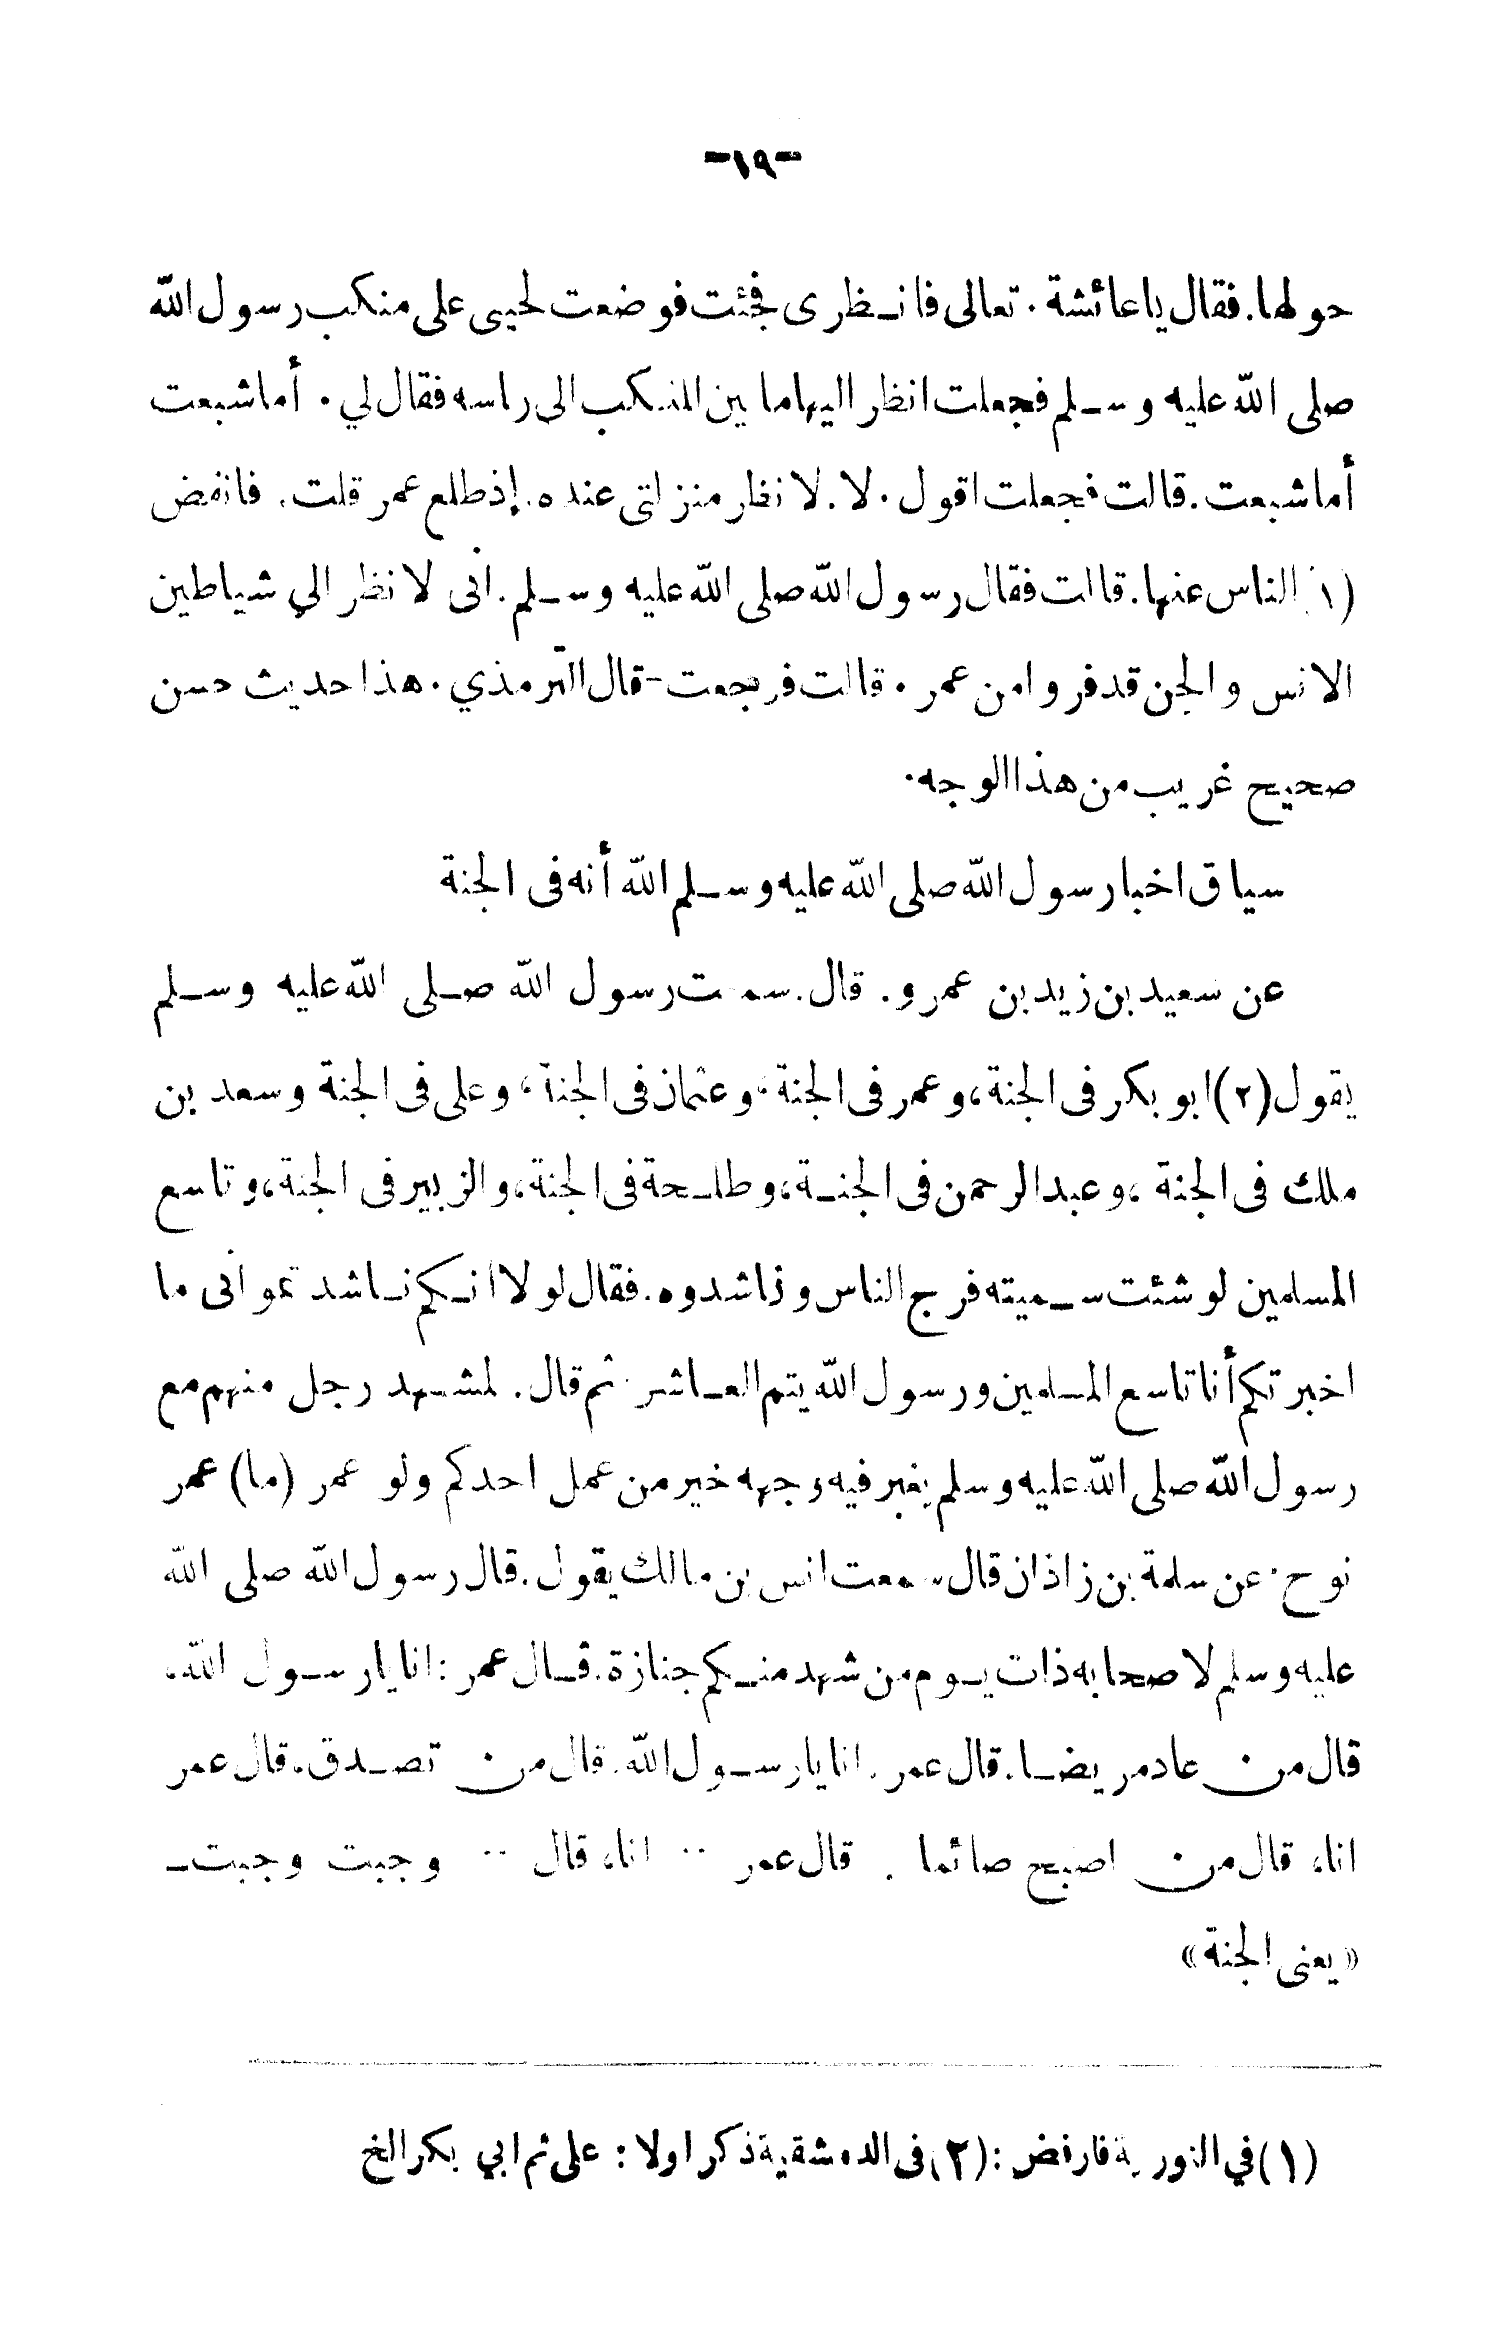 -١٩-
حولها. فقال يا عائشة. تعالى فانظرى فجئت فوضعت لحيى على منكب رسول الله
صلى الله عليه وسلم فجعلت انظر اليها ما بين المنكب الى راسه فقال لي. أما شبعت
أما شبعت. قالت فجعلت اقول. لا. لا نظر منزلتى عنده. إذ طلع عمر قلت. فانفض
(١) الناس عنها. قالت فقال رسول الله صلى الله عليه وسلم. انى لا نظر الي شياطين
الانس والجن قد فروا من عمر. قالت فرجعت- قال الترمذي. هذا حديث حسن
صحيح غريب من هذا الوجه.
سياق اخبار رسول الله صلى الله عليه وسلم الله أنه فى الجنة
عن سعيد بن زيد بن عمرو. قال. سمعت رسول الله صلى الله عليه وسلم
يقول (٢) ابو بكر فى الجنة، وعمر فى الجنة، وعثمان فى الجنة، وعلى فى الجنة وسعد بن
ملك فى الجنة، وعبد الرحمن فى الجنة، وطلحة فى الجنة، والزبير فى الجنة، وتاسع
المسلمين لو شئت سميته فرج الناس وناشدوه. فقال لولا انكم ناشدتمو انى ما
اخبرتكم أنا تاسع المسلمين ورسول الله يتم العاشر. ثم قال. لمشهد رجل منهم مع
رسول الله صلى الله عليه وسلم يغبر فيه وجهه خير من عمل احدكم ولو عمر (ما) عمر
نوح. عن سلمة بن زاذان قال سمعت انس بن مالك يقول. قال رسول الله صلى الله
عليه وسلم لا صحابه ذات يوم من شهد منكم جنازة. قال عمر: انا يا رسول الله،
قال من عاد مريضا. قال عمر. انا يا رسول الله. قال من تصدق. قال عمر
انا، قال من اصبح صائما. قال عمر .. انا، قال .. وجبت وجبت-
«يعنى الجنة»
(١) في النورية فارفض: (٢) فى الدمشقية ذكر اولا: على ثم ابي بكر الخ